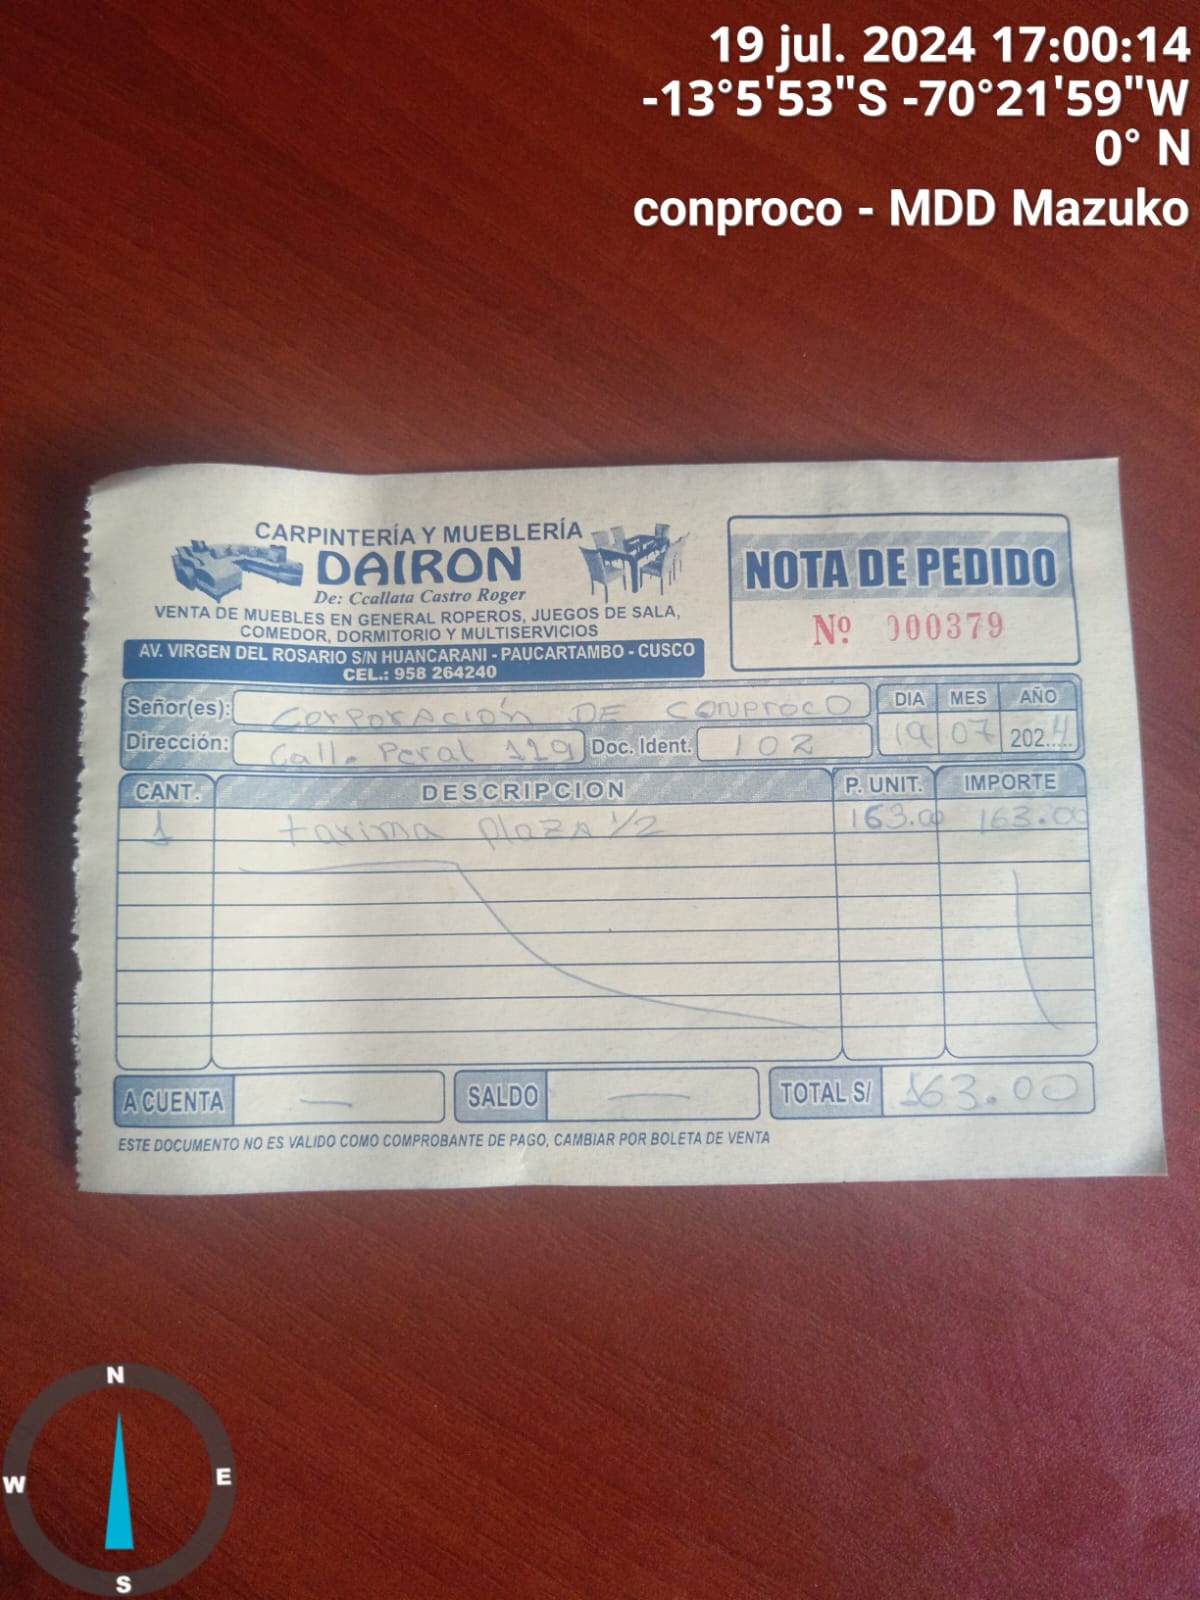 19 jul. 2024 17:00:14
-13°5'53"S -70°21'59"W
0° N
conproco - MDD Mazuko
CARPINTERÍA Y MUEBLERÍA
DAIRON
De: Ccallata Castro Roger
VENTA DE MUEBLES EN GENERAL ROPEROS, JUEGOS DE SALA,
COMEDOR, DORMITORIO Y MULTISERVICIOS
AV. VIRGEN DEL ROSARIO S/N HUANCARANI - PAUCARTAMBO - CUSCO
CEL.: 958 264240
NOTA DE PEDIDO
Nº 000379
Señor(es): Corporación DE CONPROCO
Dirección: Calle Peral 119 Doc. Ident. 102
DIA MES AÑO
19 07 2024
CANT. DESCRIPCION P. UNIT. IMPORTE
1 tarima plaza 1/2 163.00 163.00
A CUENTA — SALDO — TOTAL S/ 163.00
ESTE DOCUMENTO NO ES VALIDO COMO COMPROBANTE DE PAGO, CAMBIAR POR BOLETA DE VENTA
N
W E
S